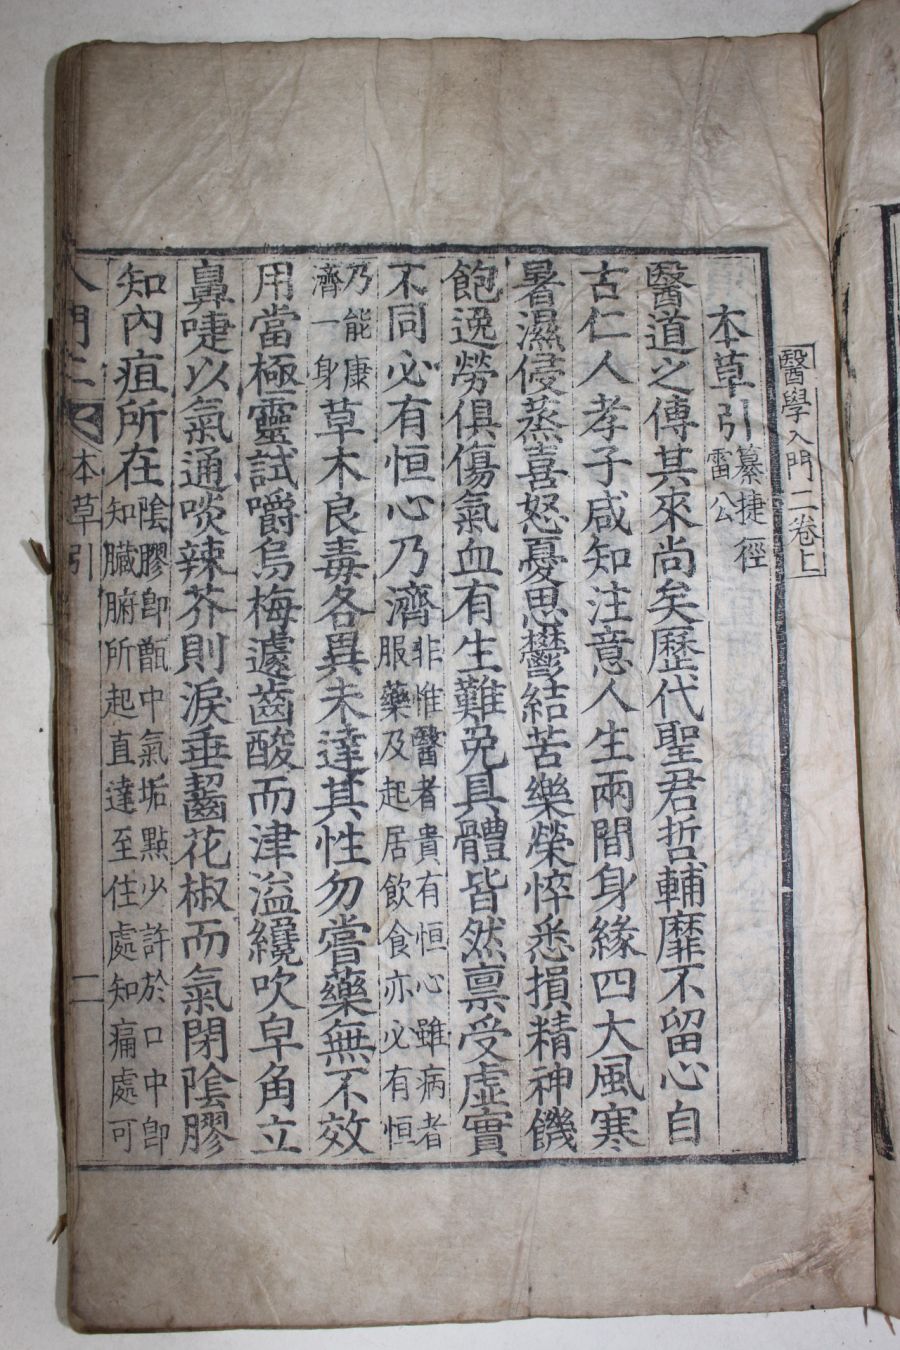 醫學入門二卷上
本草引纂捷徑
雷公
醫道之傳其來尚矣歷代聖君哲輔靡不留心自
古仁人孝子咸知注意人生兩間身緣四大風寒
暑濕侵蒸喜怒憂思鬱結苦樂榮悴悉損精神饑
飽逸勞俱傷氣血有生難免具體皆然禀受虛實
不同必有恒心乃濟非惟醫者貴有恒心雖病者
服藥及起居飮食亦必有恒
乃能康
濟一身草木良毒各異未達其性勿嘗藥無不效
用當極靈試嚼烏梅遽齒酸而津溢纔吹皁角立
鼻嚏以氣通啖辣芥則淚垂齧花椒而氣閉陰膠
知內疽所在陰膠卽甑中氣垢點少許於口中卽
知臟腑所起直達至住處知痛處可
入門二 本草引 一